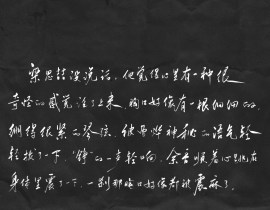 宋思铃没说话，但觉得心里有一种很
奇怪的感觉涌了上来，胸口好像有一根细细的，
绷得很紧的琴弦，被男哗神秘的语气轻
轻拨了一下，“铮”的一声轻响，余音顺着心跳在
身体里震了一下，一刹那胸口好像都被震麻了。